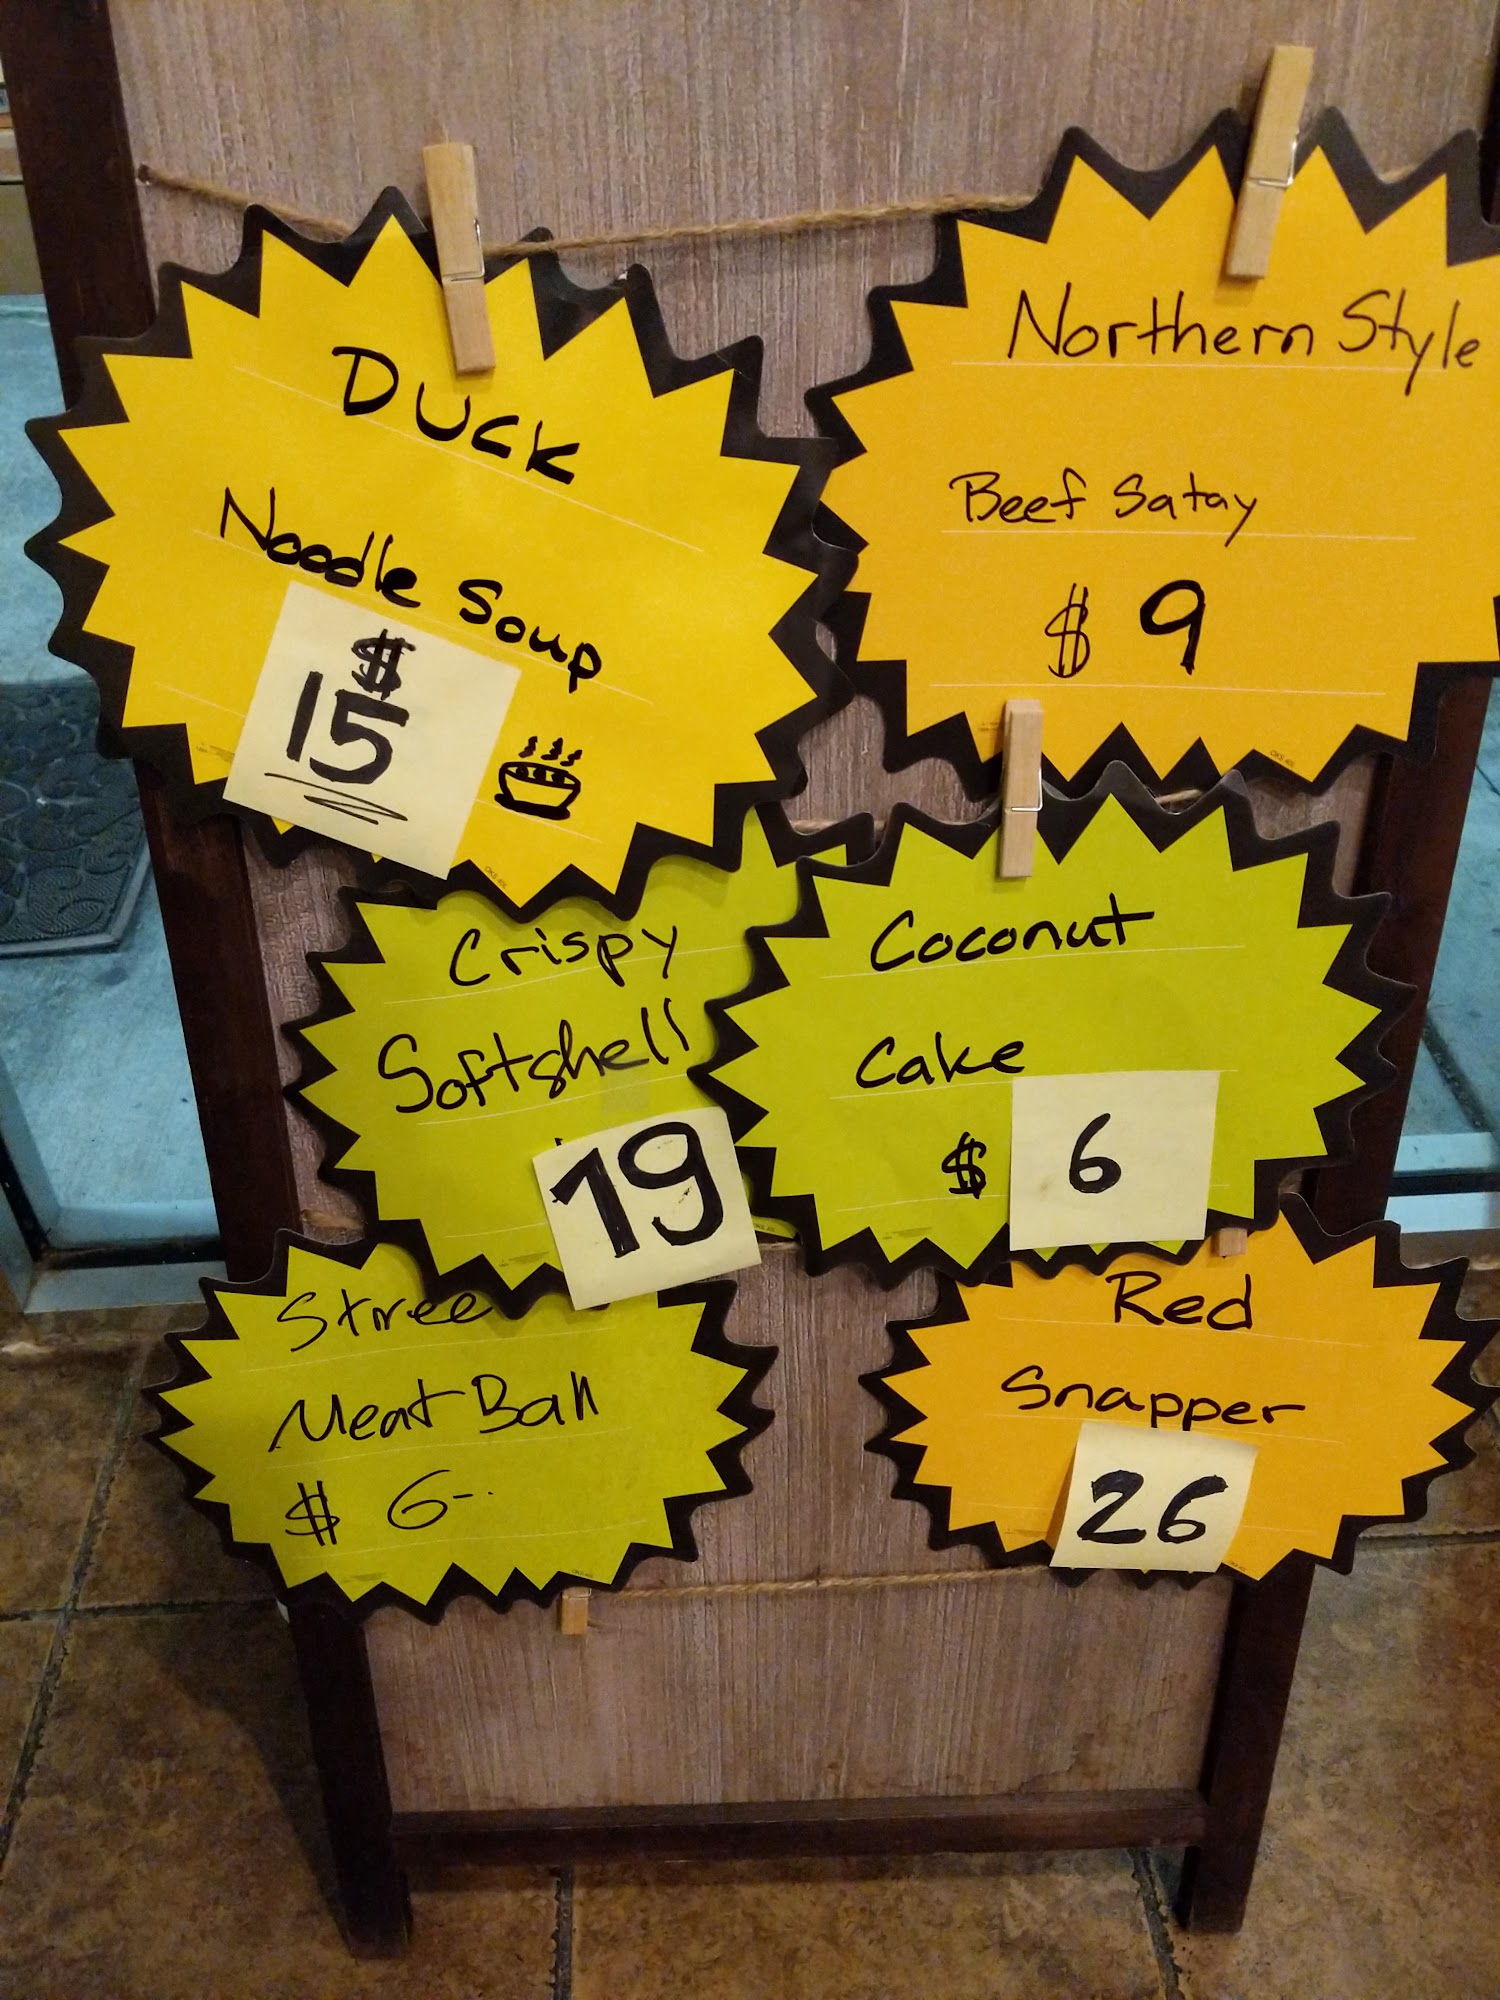 Duck
Noodle Soup
$
15
Northern Style
Beef Satay
$ 9
Crispy
Softshell
19
Coconut
Cake
$ 6
Stree
Meat Ball
$ 6-
Red
Snapper
26